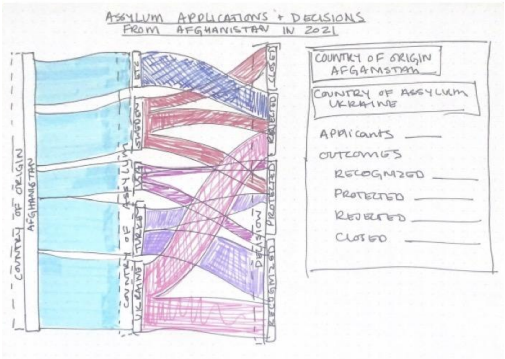 ASSYLUM APPLICATIONS + DECISIONS
FROM AFGHANISTAN IN 2021
COUNTRY OF ORIGIN
AFGHANISTAN
COUNTRY OF ASSYLUM
ETC
SWEDEN
TURKEY
UKRAINE
DECISION
CLOSED
REJECTED
PROTECTED
RECOGNIZED
COUNTRY OF ORIGIN
AFGANISTAN
COUNTRY OF ASSYLUM
UKRAINE
APPLICANTS
OUTCOMES
RECOGNIZED
PROTECTED
REJECTED
CLOSED